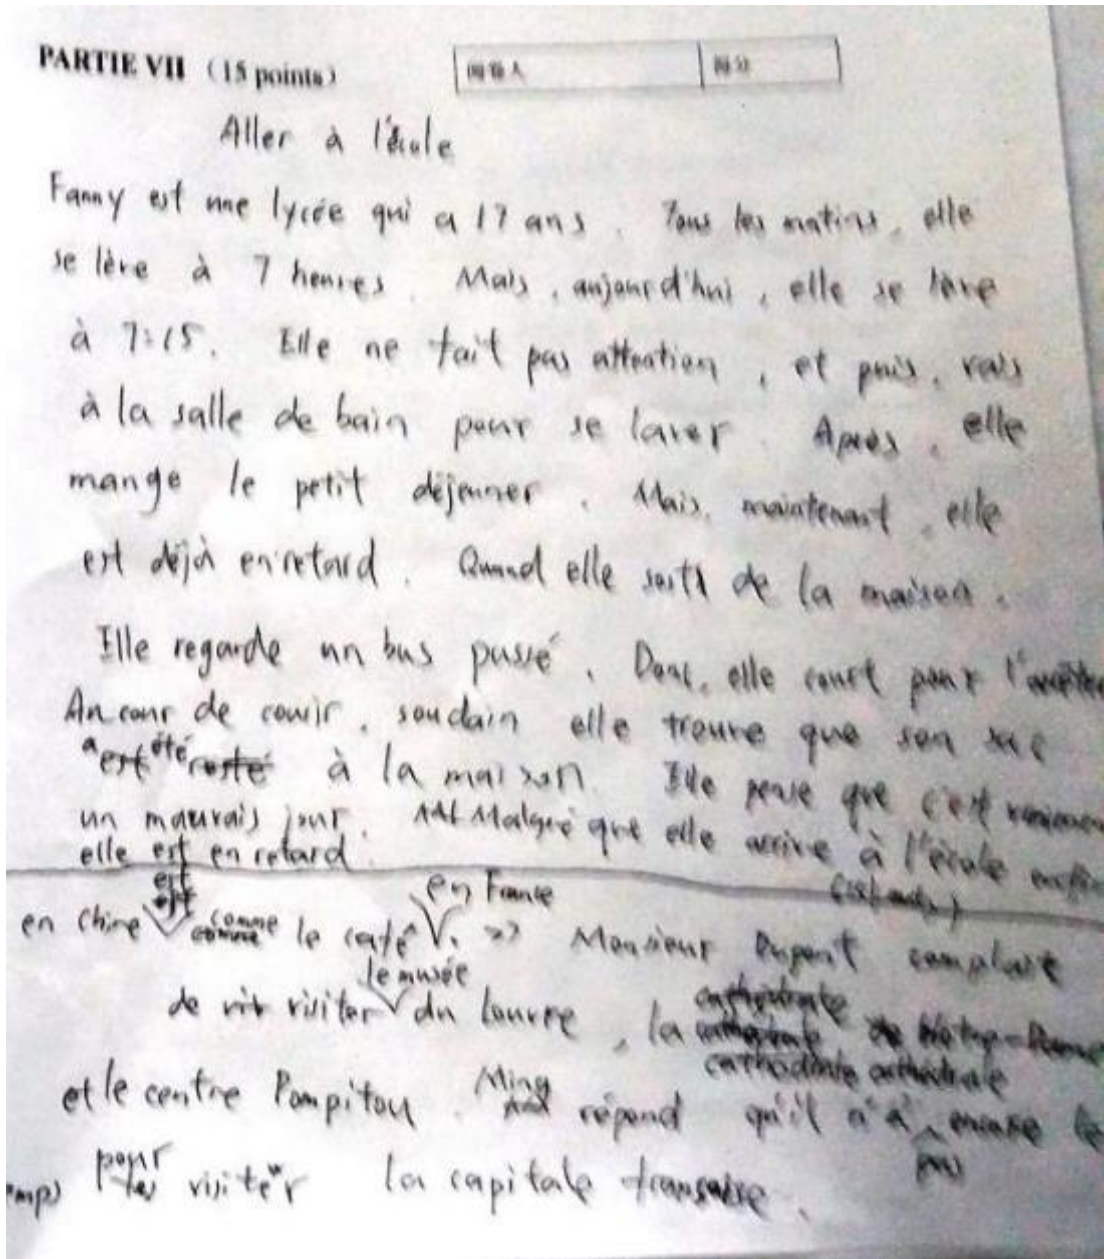 PARTIE VII (15 points)
阅卷人 得分
Aller à l'école
Fanny est une lycée qui a 17 ans. Tous les matins, elle
se lève à 7 heures. Mais, aujourd'hui, elle se lève
à 7:15. Elle ne fait pas attention, et puis, vais
à la salle de bain pour se laver. Après, elle
mange le petit déjeuner. Mais, maintenant, elle
est déjà en retard. Quand elle sort de la maison.
Elle regarde un bus passé. Donc, elle court pour l'arrêter
Au cour de courir, soudain elle trouve que son sac
a été à la maison. Elle pense que c'est
un mauvais jour. Malgré que elle arrive à l'école enfin
elle est en retard.
en chine est comme le café en France. >> Monsieur Dupont
de visiter le musée du Louvre, la cathédrale
et le centre Pompitou. Ming répond qu'il n'a pas encore le
pour visiter la capitale